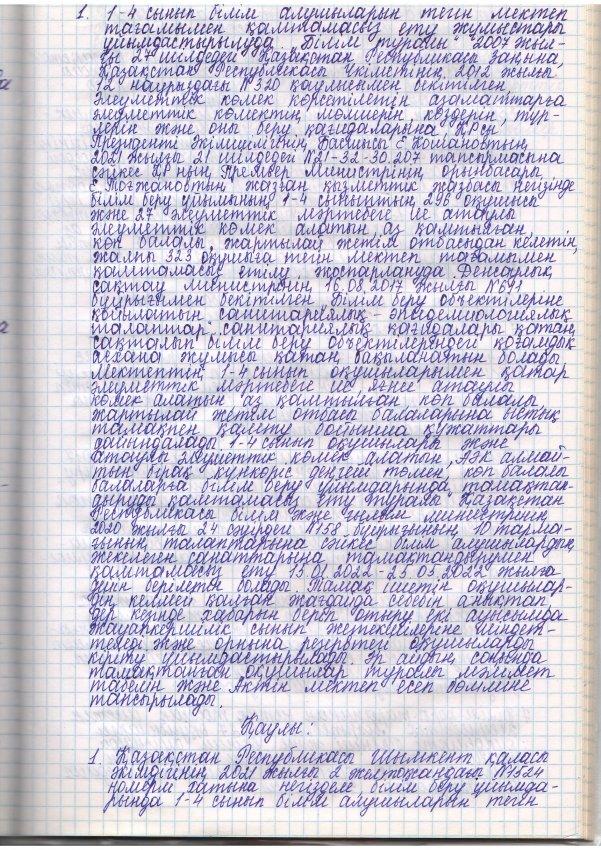 1. 1-4 сынып білім алушыларын тегін мектеп
тағамымен қамтамасыз ету жұмыстары
ұйымдастырылуда. "Білім туралы" 2007 жыл-
ғы 27 шілдедегі Қазақстан Республикасы Заңына,
Қазақстан Республикасы Үкіметінің 2012 жылғы
12 наурыздағы №320 қаулысымен бекітілген
Әлеуметтік көмек көрсетілетін азаматтарға
әлеуметтік көмектің мөлшерін, көздерін, түр-
лерін және оны беру қағидаларына ҚРсы
Президенті Әкімшілігінің Басшысы Е.Кошановтың
2021 жылғы 21 шілдедегі №21-32-30.207 тапсырмасына
сәйкес ҚР ның Премьер Министрінің орынбасары
Е.Тоғжановтың жазған қызметтік жазбасы негізінде
білім беру ұйымының 1-4 сыныптың 296 оқушысы
және 27 әлеуметтік мәртебеге ие атаулы
әлеуметтік көмек алатын, аз қамтылған,
көп балалы, жартылай жетім отбасыдан келетін,
жалпы 323 оқушыға тегін мектеп тағамымен
қамтамасыз етілу жоспарлануда. Денсаулық
сақтау министрінің 16.08.2017 жылғы №611
бұйрығымен бекітілген "Білім беру объектілеріне
қойылатын санитариялық-эпидемиологиялық
талаптар" санитариялық қағидалары қатаң
сақталып білім беру объектілеріндегі қоғамдық
асхана жұмысы қатаң бақыланатын болады.
Мектептің 1-4 сынып оқушыларымен қатар
әлеуметтік мәртебеге ие, яғни атаулы
көмек алатын аз қамтылған, көп балалы,
жартылай жетім отбасы балаларына ыстық
тамақпен қамту бойынша құжаттары
дайындалады. 1-4 сынып оқушылары және
атаулы әлеуметтік көмек алатын, АӘК алмай-
тын бірақ күнкөріс деңгейі төмен, көп балалы
балаларға білім беру ұйымдарында тамақтан-
дыруды қамтамасыз ету туралы Қазақстан
Республикасы Білім және ғылым министрінің
2020 жылғы 24 сәуірдегі №158 бұйрығының 10 тарма-
ғының талаптарына сәйкес білім алушылардың
жекелеген санаттарына тамақтандырумен
қамтамасыз ету 13.01.2022-25.05.2022 жылға
дейін берілетін болады. Тамақ ішетін оқушылар-
дың келмей қалған жағдайда себебін анықтап
дер кезінде хабарын беріп отыру екі ауысымда
жауапкершілік сынып жетекшілеріне міндет-
теледі және орнына резервтегі оқушыларды
кіргізу ұйымдастырылады. Әр айдың соңында
тамақтанған оқушылар туралы мәлімет
табелін және Актін мектеп есеп бөліміне
тапсырылады.
Қаулы:
1. Қазақстан Республикасы Шымкент қаласы
әкімдігінің 2021 жылғы 2 желтоқсандағы №1524
нөмерлі хатына негізделе, білім беру ұйымда-
рында 1-4 сынып білім алушыларын тегін